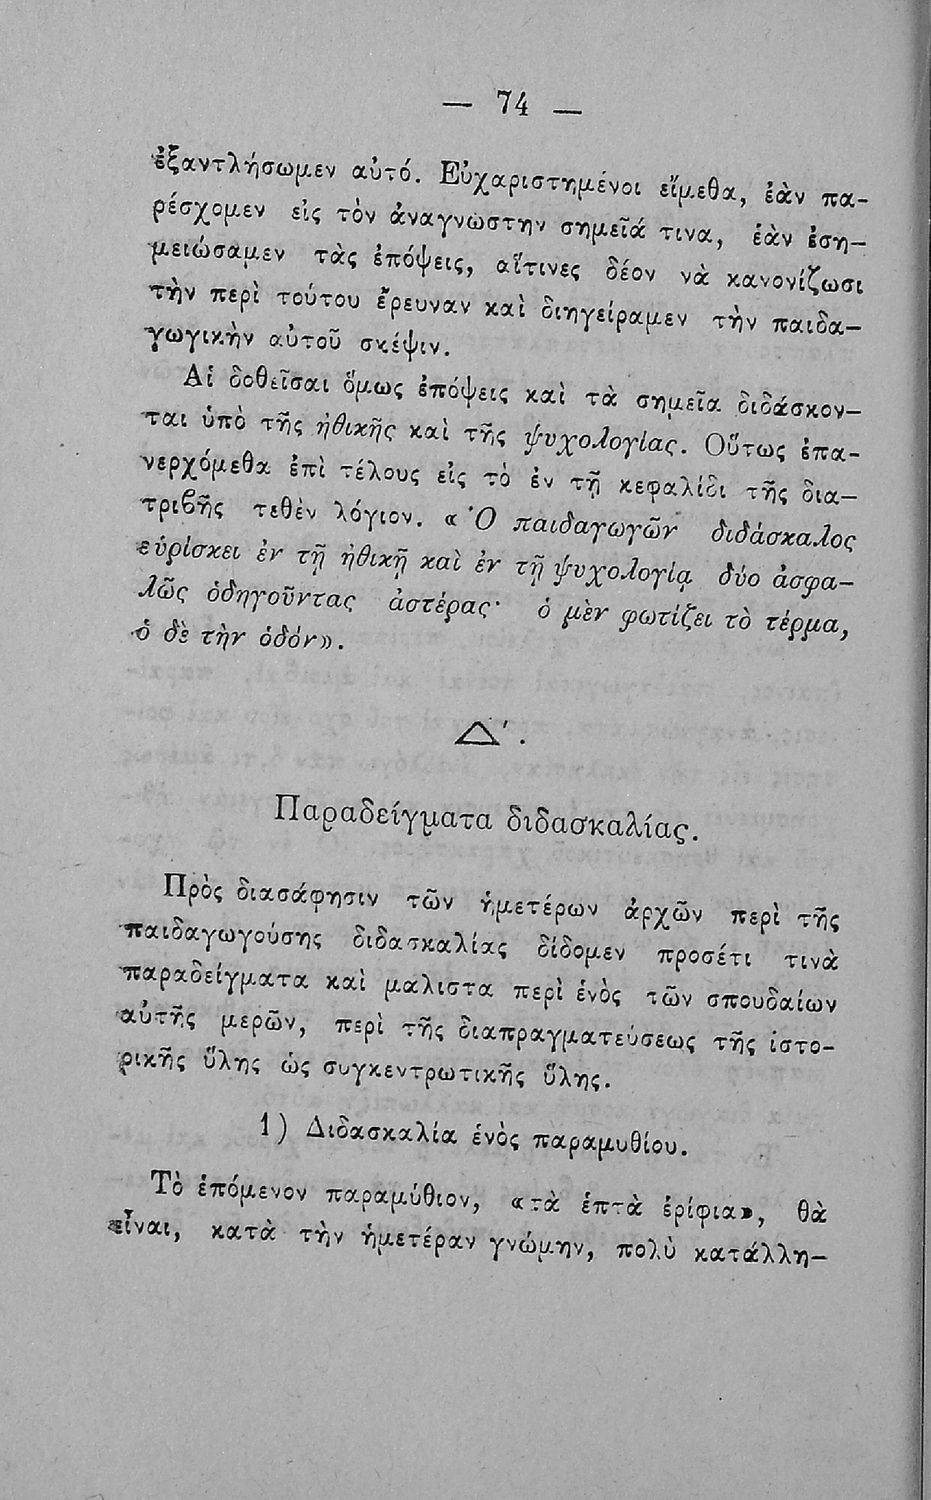 — 74 —
ἐξαντλήσωμεν αὐτό. Εὐχαριστημένοι εἴμεθα, ἐὰν πα-
ρέσχομεν εἰς τὸν ἀναγνώστην σημεῖά τινα, ἐὰν ἐση-
μειώσαμεν τὰς ἐπόψεις, αἵτινες δέον νὰ κανονίζωσι
τὴν περὶ τούτου ἔρευναν καὶ διηγείραμεν τὴν παιδα-
γωγικὴν αὐτοῦ σκέψιν.
Αἱ δοθεῖσαι ὅμως ἐπόψεις καὶ τὰ σημεῖα διδάσκον-
ται ὑπὸ τῆς ἠθικῆς καὶ τῆς ψυχολογίας. Οὕτως ἐπα-
νερχόμεθα ἐπὶ τέλους εἰς τὸ ἐν τῇ κεφαλίδι τῆς δια-
τριβῆς τεθὲν λόγιον. «Ὁ παιδαγωγῶν διδάσκαλος
εὑρίσκει ἐν τῇ ἠθικῇ καὶ ἐν τῇ ψυχολογίᾳ δύο ἀσφα-
λῶς ὁδηγοῦντας ἀστέρας· ὁ μὲν φωτίζει τὸ τέρμα,
ὁ δὲ τὴν ὁδόν».
Δ΄.
Παραδείγματα διδασκαλίας.
Πρὸς διασάφησιν τῶν ἡμετέρων ἀρχῶν περὶ τῆς
παιδαγωγούσης διδασκαλίας δίδομεν προσέτι τινὰ
παραδείγματα καὶ μαλιστα περὶ ἑνὸς τῶν σπουδαίων
αὐτῆς μερῶν, περὶ τῆς διαπραγματεύσεως τῆς ἱστο-
ρικῆς ὕλης ὡς συγκεντρωτικῆς ὕλης.
1) Διδασκαλία ἑνὸς παραμυθίου.
Τὸ ἑπόμενον παραμύθιον, «τὰ ἑπτὰ ἐρίφια», θὰ
εἶναι, κατὰ τὴν ἡμετέραν γνώμην, πολὺ κατάλλη-